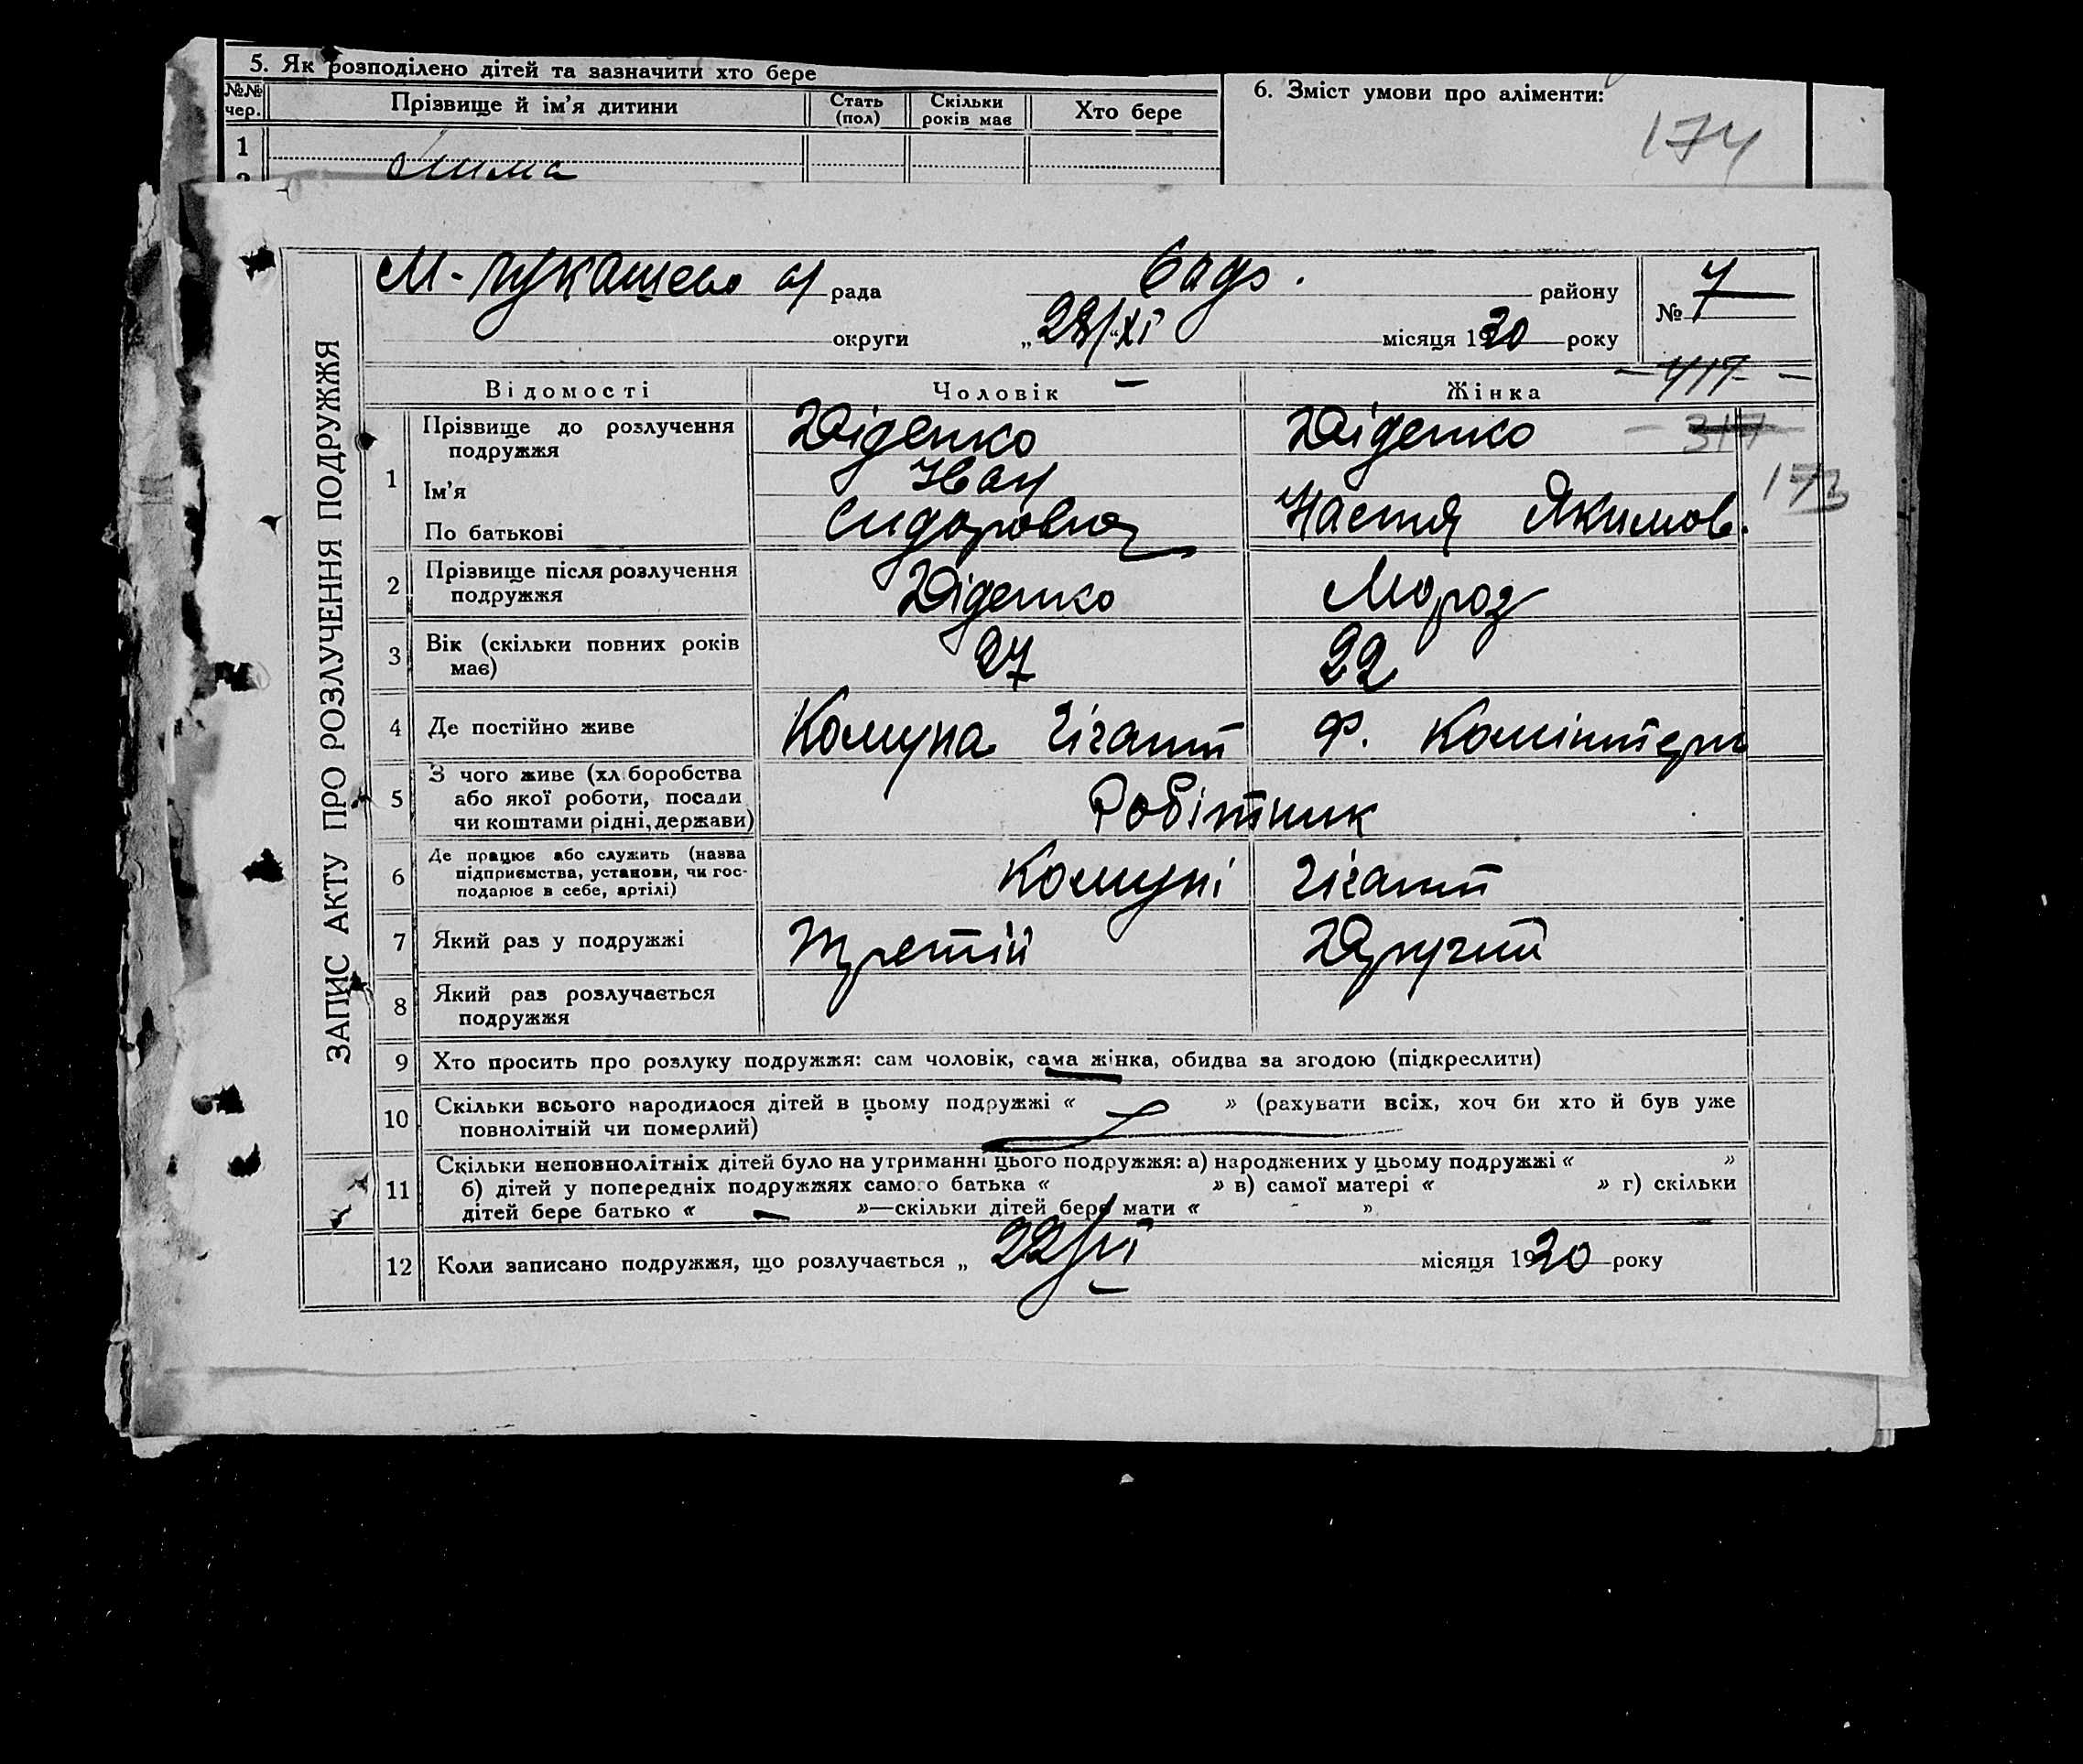 5. Як розподілено дітей та зазначити хто бере
6. Зміст умови про аліменти:
№№ чер.
Прізвище й ім'я дитини
Стать (пол)
Скільки років має
Хто бере
174
1
ЗАПИС АКТУ ПРО РОЗЛУЧЕННЯ ПОДРУЖЖЯ
рада
району
№ 7
округи „28/XI місяця 1930 року
417
Відомості Чоловік Жінка
1
Прізвище до розлучення подружжя
Діденко
Діденко
317
173
Ім'я
Іван
Настя Якимов.
По батькові
Сидорович
2
Прізвище після розлучення подружжя
Діденко
Мороз
3
Вік (скільки повних років має)
27
22
4
Де постійно живе
Комуна Гігант
Ф. Комінтерн
5
З чого живе (хліборобства або якої роботи, посади чи коштами рідні, держави)
Робітник
6
Де працює або служить (назва підприємства, установи, чи господарює в себе, артілі)
Комуні Гігант
7
Який раз у подружжі
Третій
Другий
8
Який раз розлучається подружжя
9
Хто просить про розлуку подружжя: сам чоловік, сама жінка, обидва за згодою (підкреслити)
10
Скільки всього народилося дітей в цьому подружжі « » (рахувати всіх, хоч би хто й був уже
повнолітній чи померлий)
11
Скільки неповнолітніх дітей було на утриманні цього подружжя: а) народжених у цьому подружжі « »
б) дітей у попередніх подружжях самого батька « » в) самої матері « » г) скільки
дітей бере батько « — »—скільки дітей бере мати « - »
12
Коли записано подружжя, що розлучається „ 22/VI місяця 1930 року